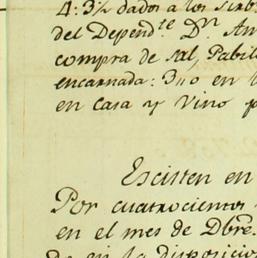 4: 3½ dados a los Sirb
del Depend.te D.n An
compra de sal, Pabil
encarnada: 3110 en
en Casa y Vino p
Escisten en
Por cuatrocientos
en el mes de Dbre.
en la disposicio